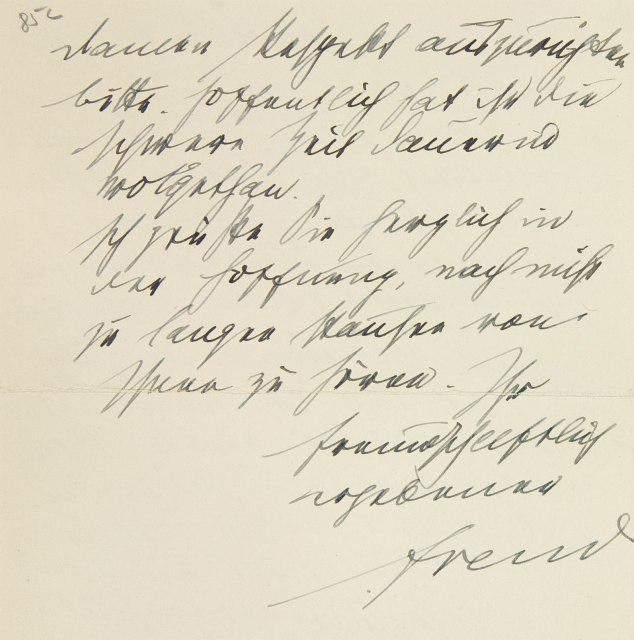 85c
Damen Respekt auszurichten
bitte. Hoffentlich hat ihr die
schwere Zeit dauernd
wolgethan.
Ich grüße Sie herzlich in
der Hoffnung, nach nicht
zu langer Pause von
Ihnen zu hören. Ihr
freundschaftlich
ergebener
Freud